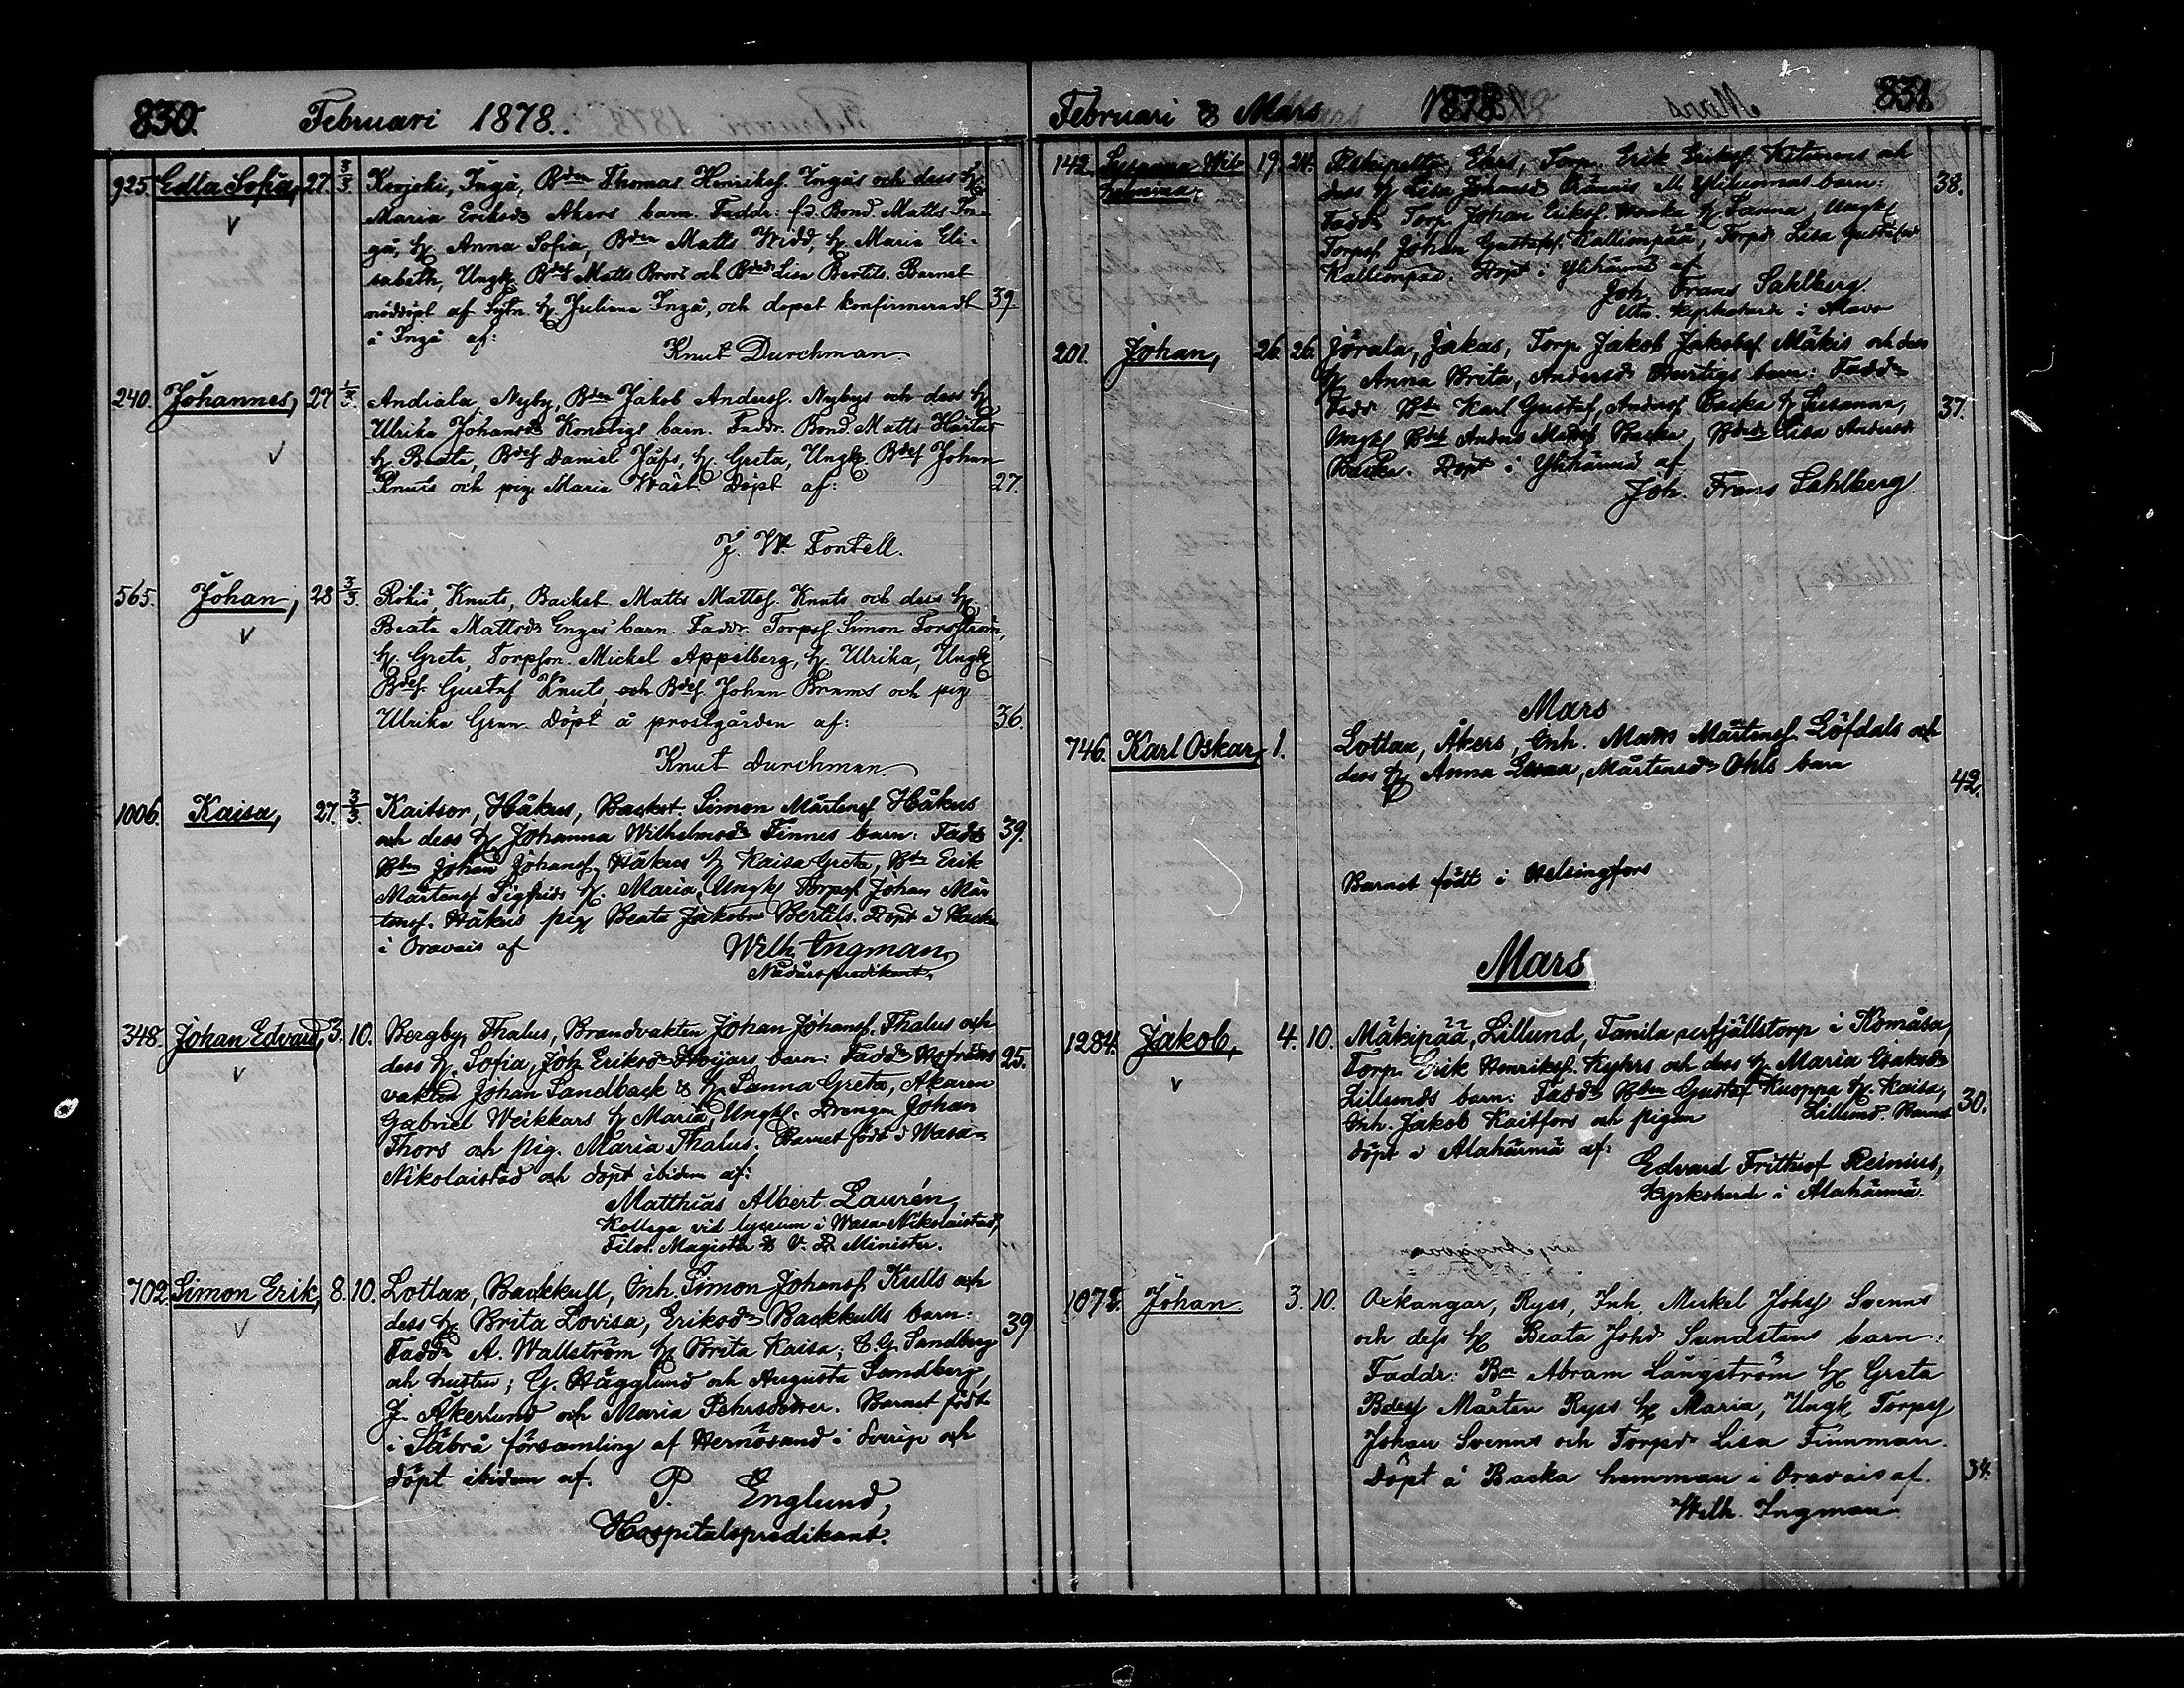 830. Februari 1878.
925. Edla Sofia, 27. 3/3. Keojoki, Ingå, Bden Thomas Henriksf. Ingås och dess H.
Maria Eriksdr Akers barn. Faddr: f.d. Bond. Matts In-
gå, H. Anna Sofia, Bden Matts Widd, H. Maria Eli-
sabeth, Ungk. Bdes Matts Brors och Bdedr Lisa Bertils. Barnet
nöddöpt af Sytn. H. Juliana Ingå, och dopet konfirmeradt 39
i Ingå af:
Knut Durchman
240. Johannes, 27 Andiala, Nyby, Bden Jakob Andersf. Nybys och dess H.
Ulrika Johansdr Konstigs barn. Faddr. Bond. Matts
H. Beata, Bdes Daniel Jåfs, H. Greta, Ungk. Bdes Johan
Knuts och pig. Maria Wäst. Döpt af: 27.
J. W. Fontell.
565. Johan, 28 3/3. Rökiö, Knuts, Backst. Matts Mattsf. Knuts och dess H.
Beata Mattsdr Enges barn. Faddr. Torpsf. Simon Forsström,
H. Greta, Torpson. Mickel Appelberg, H. Ulrika, Ungk.
Bdes. Gustaf Knuts, och Bdes Johan Brams och pig.
Ulrika Gran. Döpt å prostgården af: 36.
Knut Durchman
1006. Kaisa, 27. 3/3. Kaitsor, Håkus, Backst. Simon Mårtensf Håkus
och dess H. Johanna Wilhelmsdr Finnes barn: Faddr 39.
Bden Johan Johansf. Håkus H. Kaisa Greta, Bdn Erik
Mårtensf Sigfrids H. Maria, Ungk Torpsf Johan Mår-
tensf. Håkus pig Beata Jakobsdr Bertils. Döpt å Backa
i Oravais af Wilh. Ingman,
Nådårspredikant.
348. Johan Edvard, 3. 10. Bergby, Thalus, Brandvakten Johan Johansf. Thalus och
dess H. Sofia, Joh. Eriksdr barn: Faddr 25.
vakten Johan Sandback & H. Sanna Greta, Åkaren
Gabriel Weikkars H. Maria, Ungk. Drengen Johan
Thors och pig. Maria Thalus. Barnet födt i Wasa-
Nikolaistad och döpt ibidem af:
Matthias Albert Laurén,
Kollega vid lyceum i Wasa-Nikolaistad,
Filos. Magister & V. D. Minister.
702. Simon Erik, 8. 10. Lottax, Backkull, Inh. Simon Johansf. Kulls och
dess H. Brita Lovisa, Eriksdr Backkulls barn:
Faddr A. Wallström H. Brita Kaisa; C. G. Sandberg 39
och hustru; G. Hägglund och Augusta Sandberg,
J. Åkerlund och Maria Pehrsdotter. Barnet födt
i Säbrå församling af Hernösand i Sverige och
döpt ibidem af. P. Englund,
Hospitalspredikant.
Februari & Mars 1878 831.
142. Susanna Wil- 19. 24. Ekars, Torp. Erik Eriksf. och
helmina, dess H. Lisa Johansdr barn: 38.
Faddr Torp. Johan Eriksf. H. Sanna, Ungk
Torpsf. Johan Gustafsf. Kalliompää, Torpdr Lisa Gustafsdr
Kalliompää. Döpt i Ylihärmä af
Joh. Frans Sahlberg.
Utn. Kyrkoherde i Alavo
201. Johan, 26. 26. Jörala, Jakas, Torp. Jakob Jakobsf. Mäkis och dess
H. Anna Brita, Andersdr Hurtigs barn: Faddr
Faddr. Bdn Karl Gustaf, Andersf Backa H. Susanna, 37.
Ungk Bdes Anders Mattsf Backa, Bdedr Lisa Andersdr
Backa. Döpt i Ylihärmä af
Joh. Frans Sahlberg.
Mars
746. Karl Oskar, 1. Lottax, Åkers, Inh. Matts Mårtensf. Löfdals och
dess H. Anna, Mårtensdr Ohls barn 42.
Barnet födt i Helsingfors
Mars
1284. Jakob, 4. 10. Mäkipää, Lillund, Tanila perfjällstorp i Komåsa,
Torp. Erik Henriksf. Kyhrs och dess H. Maria Isaksdr
Lillunds barn: Faddr Bden Gustaf Kuoppa H. Kaisa, 30.
Inh. Jakob Kaitfors och pigan Lillund. Barnet
döpt i Alahärmä af:
Edvard Frithiof Reinius,
Kyrkoherde i Alahärmä.
1078. Johan 3. 10. Oxkangar, Ryss, Inh. Mickel Johsf Svenns
och dess H. Beata Johsdr Sundstens barn:
Faddr: Bn Abram Långström H. Greta
Bdesf Mårten Ryss H. Maria, Ungk Torpsf
Johan Svenns och Torpdr Lisa Finnman.
Döpt å Backa hemman i Oravais af. 34.
Wilh. Ingman